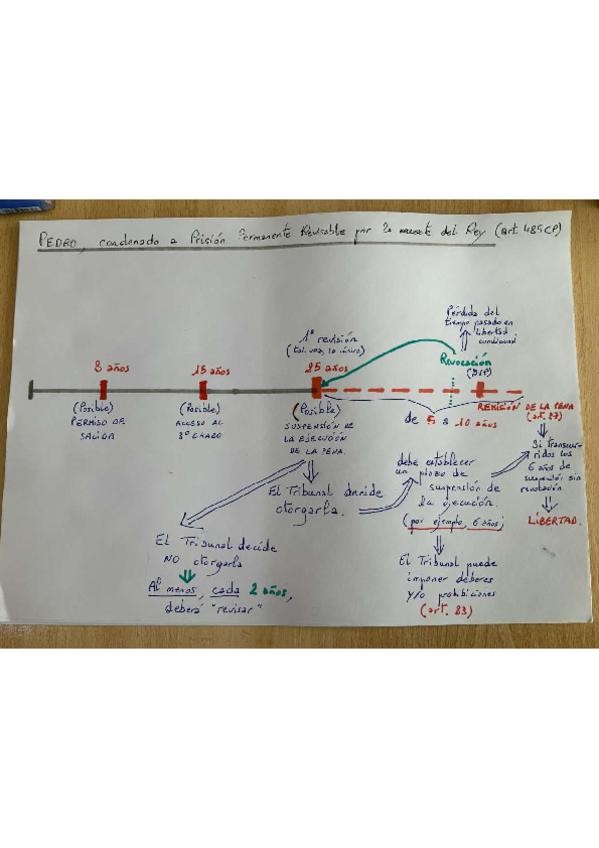 PEDRO, condenado a Prisión Permanente Revisable por la muerte del Rey (art. 485 CP)
Pérdida del
tiempo pasado en
libertad
condicional
1ª revisión
(tal vez, la única)
Revocación
8 años
15 años
25 años
(Posible)
PERMISO DE
SALIDA
(Posible)
ACCESO AL
3º GRADO
(Posible)
SUSPENSIÓN DE
LA EJECUCIÓN
DE LA PENA.
de 5 a 10 años
REMISIÓN DE LA PENA
(art. 87)
Si transcur-
ridos los
6 años de
suspensión sin
revocación.
LIBERTAD.
El Tribunal decide
otorgarla.
debe establecer
un plazo de
suspensión de
la ejecución.
(por ejemplo, 6 años)
El Tribunal puede
imponer deberes
y/o prohibiciones
(art. 83)
El Tribunal decide
NO otorgarla
Al menos, cada 2 años,
deberá "revisar"